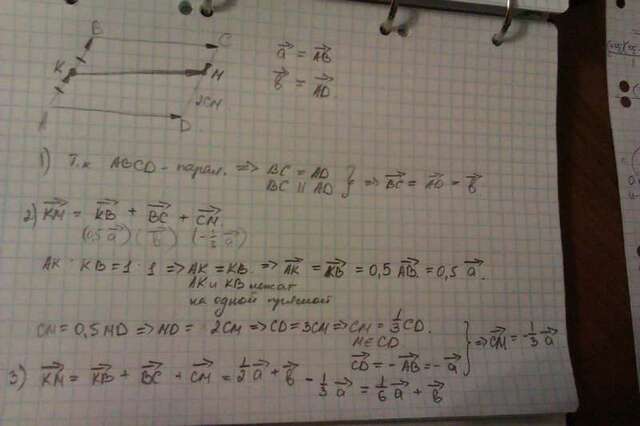 B
C
K
M
2CM
A
D
a⃗ = AB⃗
b⃗ = AD⃗
1) Т.к ABCD - парал. => BC = AD
BC || AD } => BC⃗ = AD⃗ = b⃗
2) KM⃗ = KB⃗ + BC⃗ + CM⃗
(0,5 a⃗) (b⃗) (-1/3 a⃗)
AK : KB = 1 : 1 => AK = KB. => AK⃗ = KB⃗ = 0,5 AB⃗ = 0,5 a⃗.
AK и KB лежат
на одной прямой
CM = 0,5 MD => MD = 2CM => CD = 3CM => CM = 1/3 CD.
M∈CD
CD⃗ = -AB⃗ = -a⃗ } => CM⃗ = -1/3 a⃗
3) KM⃗ = KB⃗ + BC⃗ + CM⃗ = 1/2 a⃗ + b⃗ - 1/3 a⃗ = 1/6 a⃗ + b⃗